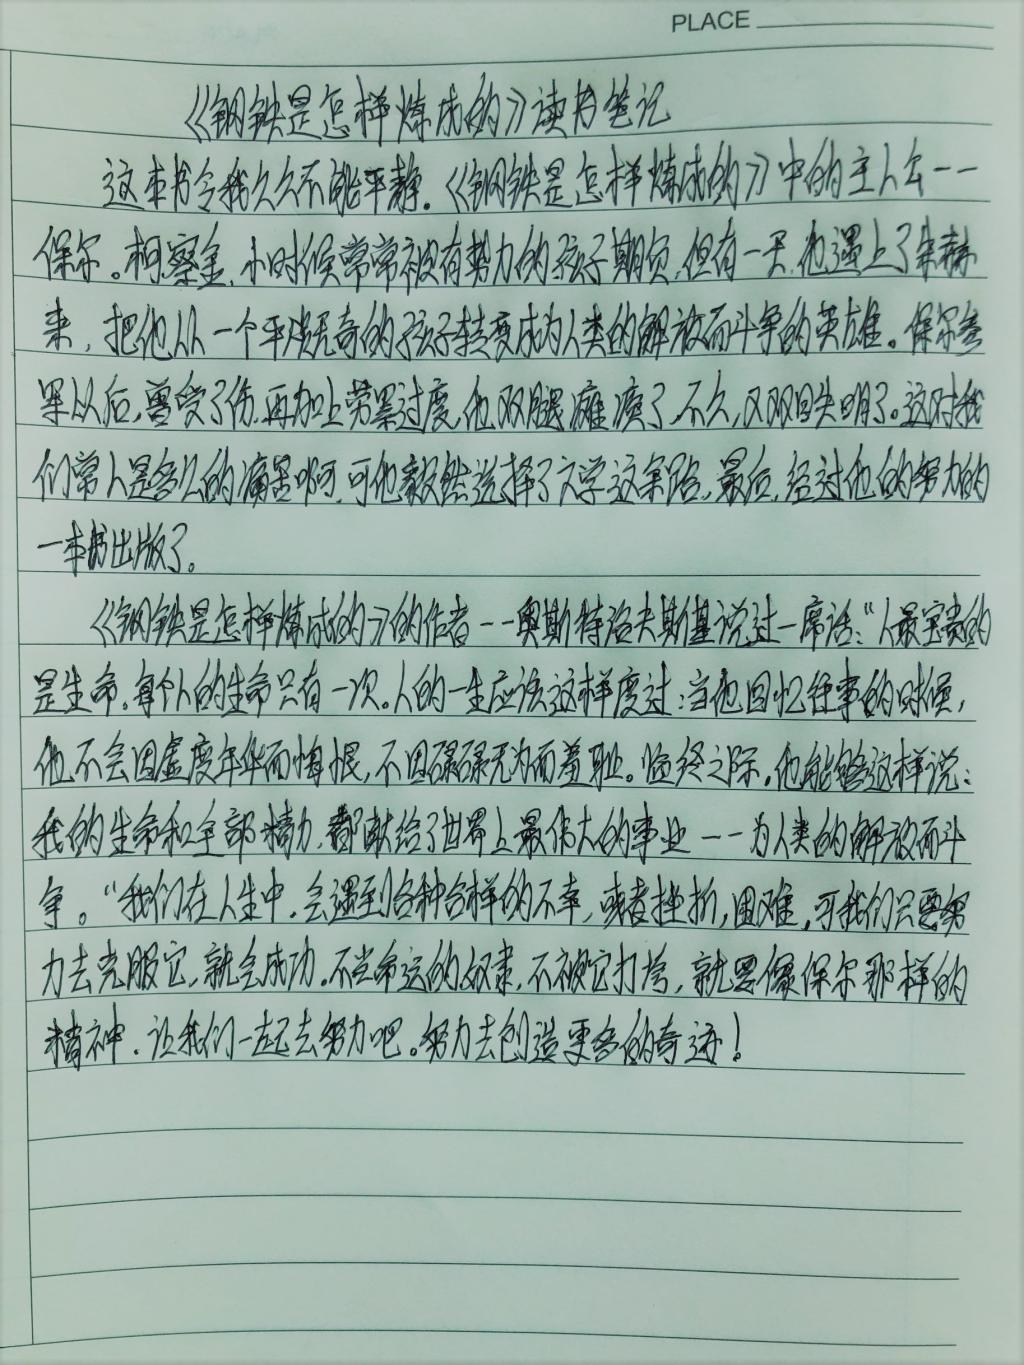 PLACE
《钢铁是怎样炼成的》读书笔记
这本书令我久久不能平静.《钢铁是怎样炼成的》中的主人公--
保尔。柯察金,小时候常常被有势力的孩子期负,但有一天,他遇上了朱赫
来,把他从一个平淡无奇的孩子转变成为人类的解放而斗争的英雄。保尔参
军以后,曾受了伤,再加上劳累过度,他双腿瘫痪了,不久,又双目失明了。这对我
们常人是多么的痛苦啊,可他毅然选择了文学这条路,最后,经过他的努力的
一本书出版了。
《钢铁是怎样炼成的》的作者--奥斯特洛夫斯基说过一席话:"人最宝贵的
是生命,每个人的生命只有一次。人的一生应该这样度过:当他回忆往事的时候,
他不会因虚度年华而悔恨,不因碌碌无为而羞耻。临终之际,他能够这样说:
我的生命和全部精力,都献给了世界上最伟大的事业--为人类的解放而斗
争。"我们在人生中,会遇到各种各样的不幸,或者挫折,困难,可我们只要努
力去克服它,就会成功.不当命运的奴隶,不被它打垮,就要像保尔那样的
精神.让我们一起去努力吧。努力去创造更多的奇迹!